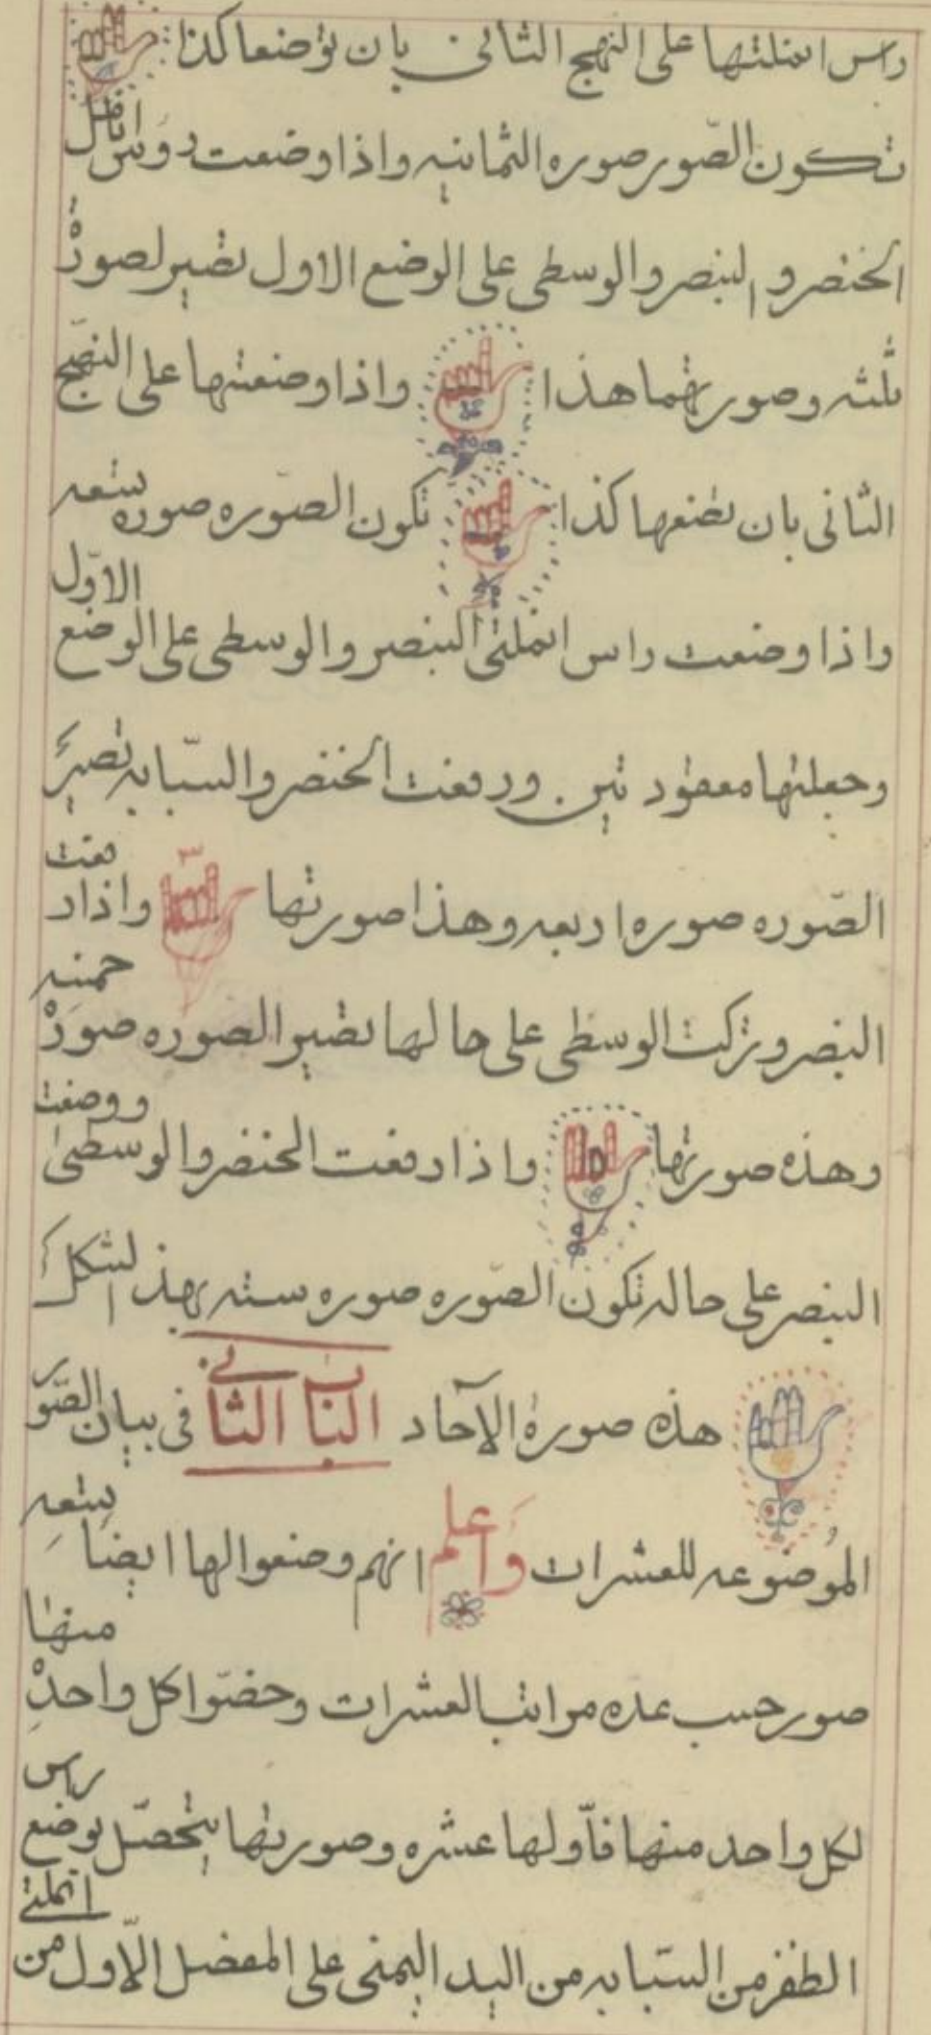 راس انملتها على النهج الثانى بان توضعا كذا
تكون الصّور صوره الثمانيه واذا وضعت رؤس انامل
الخنصر والبنصر والوسطى على الوضع الاول تصير لصورة
ثلثه وصورتهما هذا واذا وضعتها على النهج
الثانى بان تضعها كذا تكون الصّوره صوره تسعه
واذا وضعت راس انملتى البنصر والوسطى على الوضع الاوّل
وجعلتها معقود تين ورفعت الخنصر والسّبابه تصير
الصّوره صوره اربعه وهذا صورتها واذا رفعت
البنصر وتركت الوسطى على حالها تصير الصوره صورة خمسه
وهذه صورتها واذا رفعت الخنصر والوسطى ووضعت
البنصر على حاله تكون الصّوره صوره سته بهذ الشكل
هذه صورة الآحاد الباب الثانى فى بيان الصّور
الموضوعه للعشرات واعلم انهم وضعوا لها ايضا تسعه
صور حسب عده مراتب العشرات وخصّوا كل واحدة منها
لكل واحد منها فاّولها عشره وصورتها يتحصّل بوضع راس انملتى
الظفر من السّبابه من اليد اليمنى على المفصل الاّول من